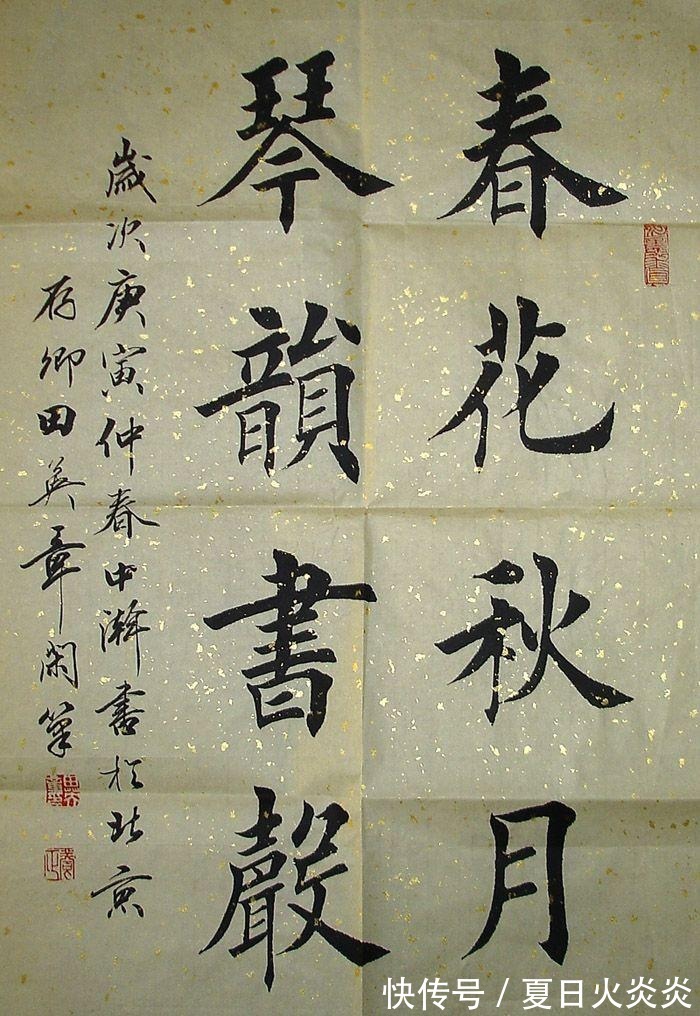 春花秋月
琴韻書聲
歲次庚寅仲春中瀚書於北京
存卿田英章閑筆
快传号 / 夏日火炎炎